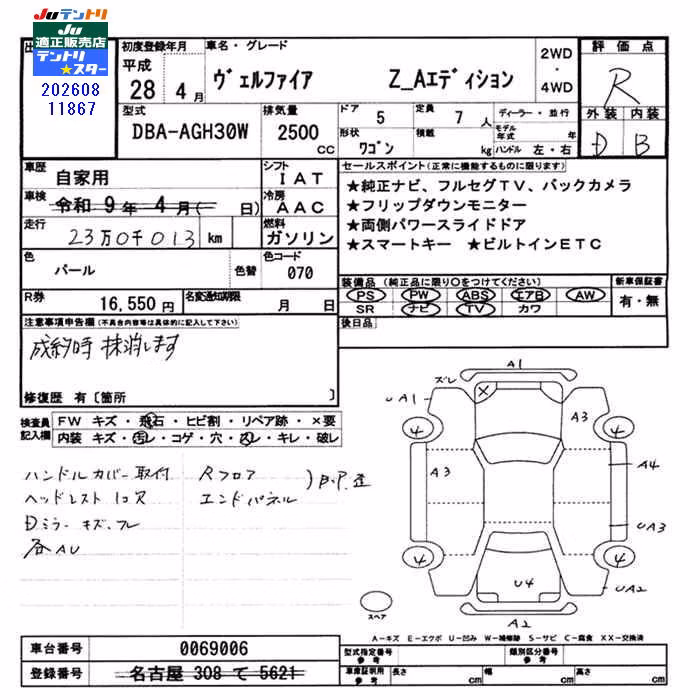 Juテントリ
Ju
適正販売店
テントリ
★スター
202608
11867
初度登録年月
平成
28 4月
車名・グレード
ヴェルファイア Z_Aエディション
2WD
・
4WD
評価点
R
外装 内装
D B
型式
DBA-AGH30W
排気量
2500
CC
ドア
5
定員
7人
形状
ワゴン
積載
kg
ディーラー・並行
モデル年式 年
ハンドル 左・右
車歴
自家用
シフト
IAT
車検
令和 9年 4月( 日)
冷房
AAC
走行
23万0千013 km
燃料
ガソリン
色
パール
色替
色コード
070
R券
16,550円
名変通知期限
月 日
セールスポイント(正常に機能するものに限ります)
★純正ナビ、フルセグTV、バックカメラ
★フリップダウンモニター
★両側パワースライドドア
★スマートキー ★ビルトインETC
装備品(純正品に限り○をつけてください)
新車保証書
PS PW ABS エアB AW
SR ナビ TV カワ
有・無
後日品
注意事項申告欄(不具合内容等は具体的に記入して下さい)
成約時 抹消します
修復歴 有〔箇所 〕
検査員
記入欄
FW キズ・飛石・ヒビ割・リペア跡・×要
内装 キズ・汚レ・コゲ・穴・スレ・キレ・破レ
ハンドルカバー取付
ヘッドレスト1コ欠
Dミラー キズ、フレ
各AU
Rフロア
エンドパネル
A1
ズレ
UA1
A3
4
4
A3
A4
UA3
4
4
U4
UA2
A2
スペア
A-キズ E-エクボ U-凹み W-補修跡 S-サビ C-腐食 XX-交換済
車台番号
0069006
登録番号
名古屋 308 て 5621
型式指定番号
参考
類別区分番号
参考
車庫証明用
参考
長さ cm
幅 cm
高さ cm